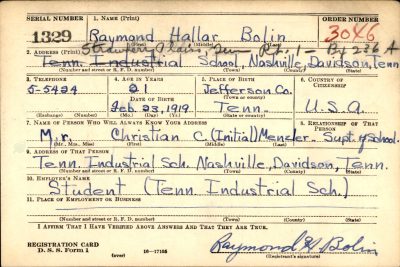 SERIAL NUMBER 1. NAME (Print) ORDER NUMBER
1329 Raymond Hallar Bolin 3046
(First) (Middle) (Last)
Strawberry Plains, Tenn Rt. 1- Bx 236 A
2. ADDRESS (Print)
Tenn. Industrial School, Nashville, Davidson, Tenn
(Number and street or R. F. D. number) (Town) (County) (State)
3. TELEPHONE 4. AGE IN YEARS 5. PLACE OF BIRTH 6. COUNTRY OF CITIZENSHIP
5-5424 21 Jefferson Co.
DATE OF BIRTH (Town or county)
Feb. 23, 1919 Tenn. U.S.A.
(Exchange) (Number) (Mo.) (Day) (Yr.) (State or country)
7. NAME OF PERSON WHO WILL ALWAYS KNOW YOUR ADDRESS 8. RELATIONSHIP OF THAT PERSON
Mr. Christian C. (Initial) Menzler Supt. of School.
(Mr., Mrs., Miss) (First) (Middle) (Last)
9. ADDRESS OF THAT PERSON
Tenn. Industrial Sch. Nashville, Davidson, Tenn.
(Number and street or R. F. D. number) (Town) (County) (State)
10. EMPLOYER'S NAME
Student (Tenn. Industrial Sch.)
11. PLACE OF EMPLOYMENT OR BUSINESS
(Number and street or R. F. D. number) (Town) (County) (State)
I AFFIRM THAT I HAVE VERIFIED ABOVE ANSWERS AND THAT THEY ARE TRUE.
REGISTRATION CARD
D. S. S. Form 1 16-17105 Raymond H. Bolin
(over) (Registrant's signature)